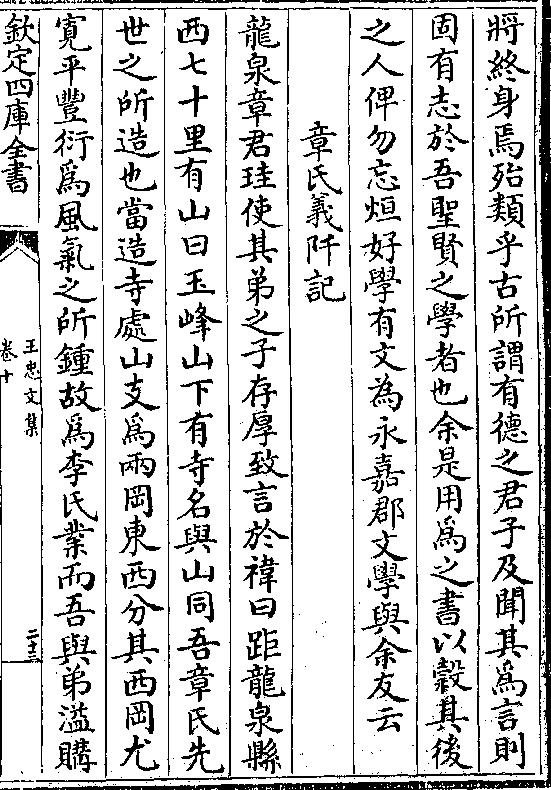 將終身焉殆類乎古所謂有德之君子及聞其為言則
固有志於吾聖賢之學者也余是用爲之書以穀其後
之人俾勿忘烜好學有文為永嘉郡文學與余友云
章氏義阡記
龍泉章君珪使其弟之子存厚致言於禕曰距龍泉縣
西七十里有山曰玉峰山下有寺名與山同吾章氏先
世之所造也當造寺處山支爲兩岡東西分其西岡尤
寛平豐衍爲風氣之所鍾故爲李氏業而吾與弟溢購
欽定四庫全書
王忠文集
卷十
二十三